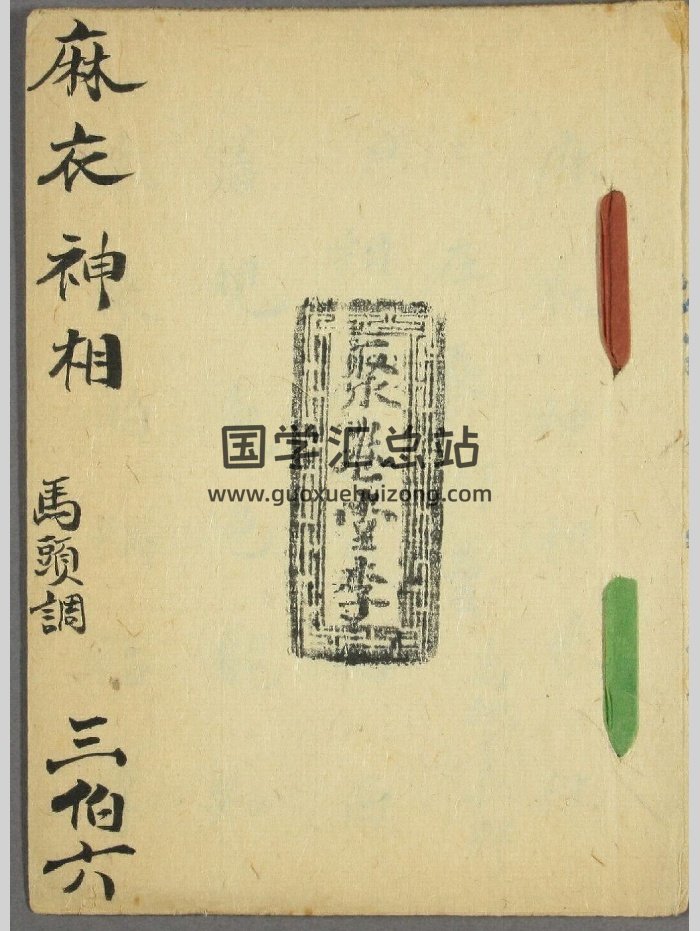 麻衣神相
馬頭調
三伯六
聚卷堂李
国学汇总站
www.guoxuehuizong.com